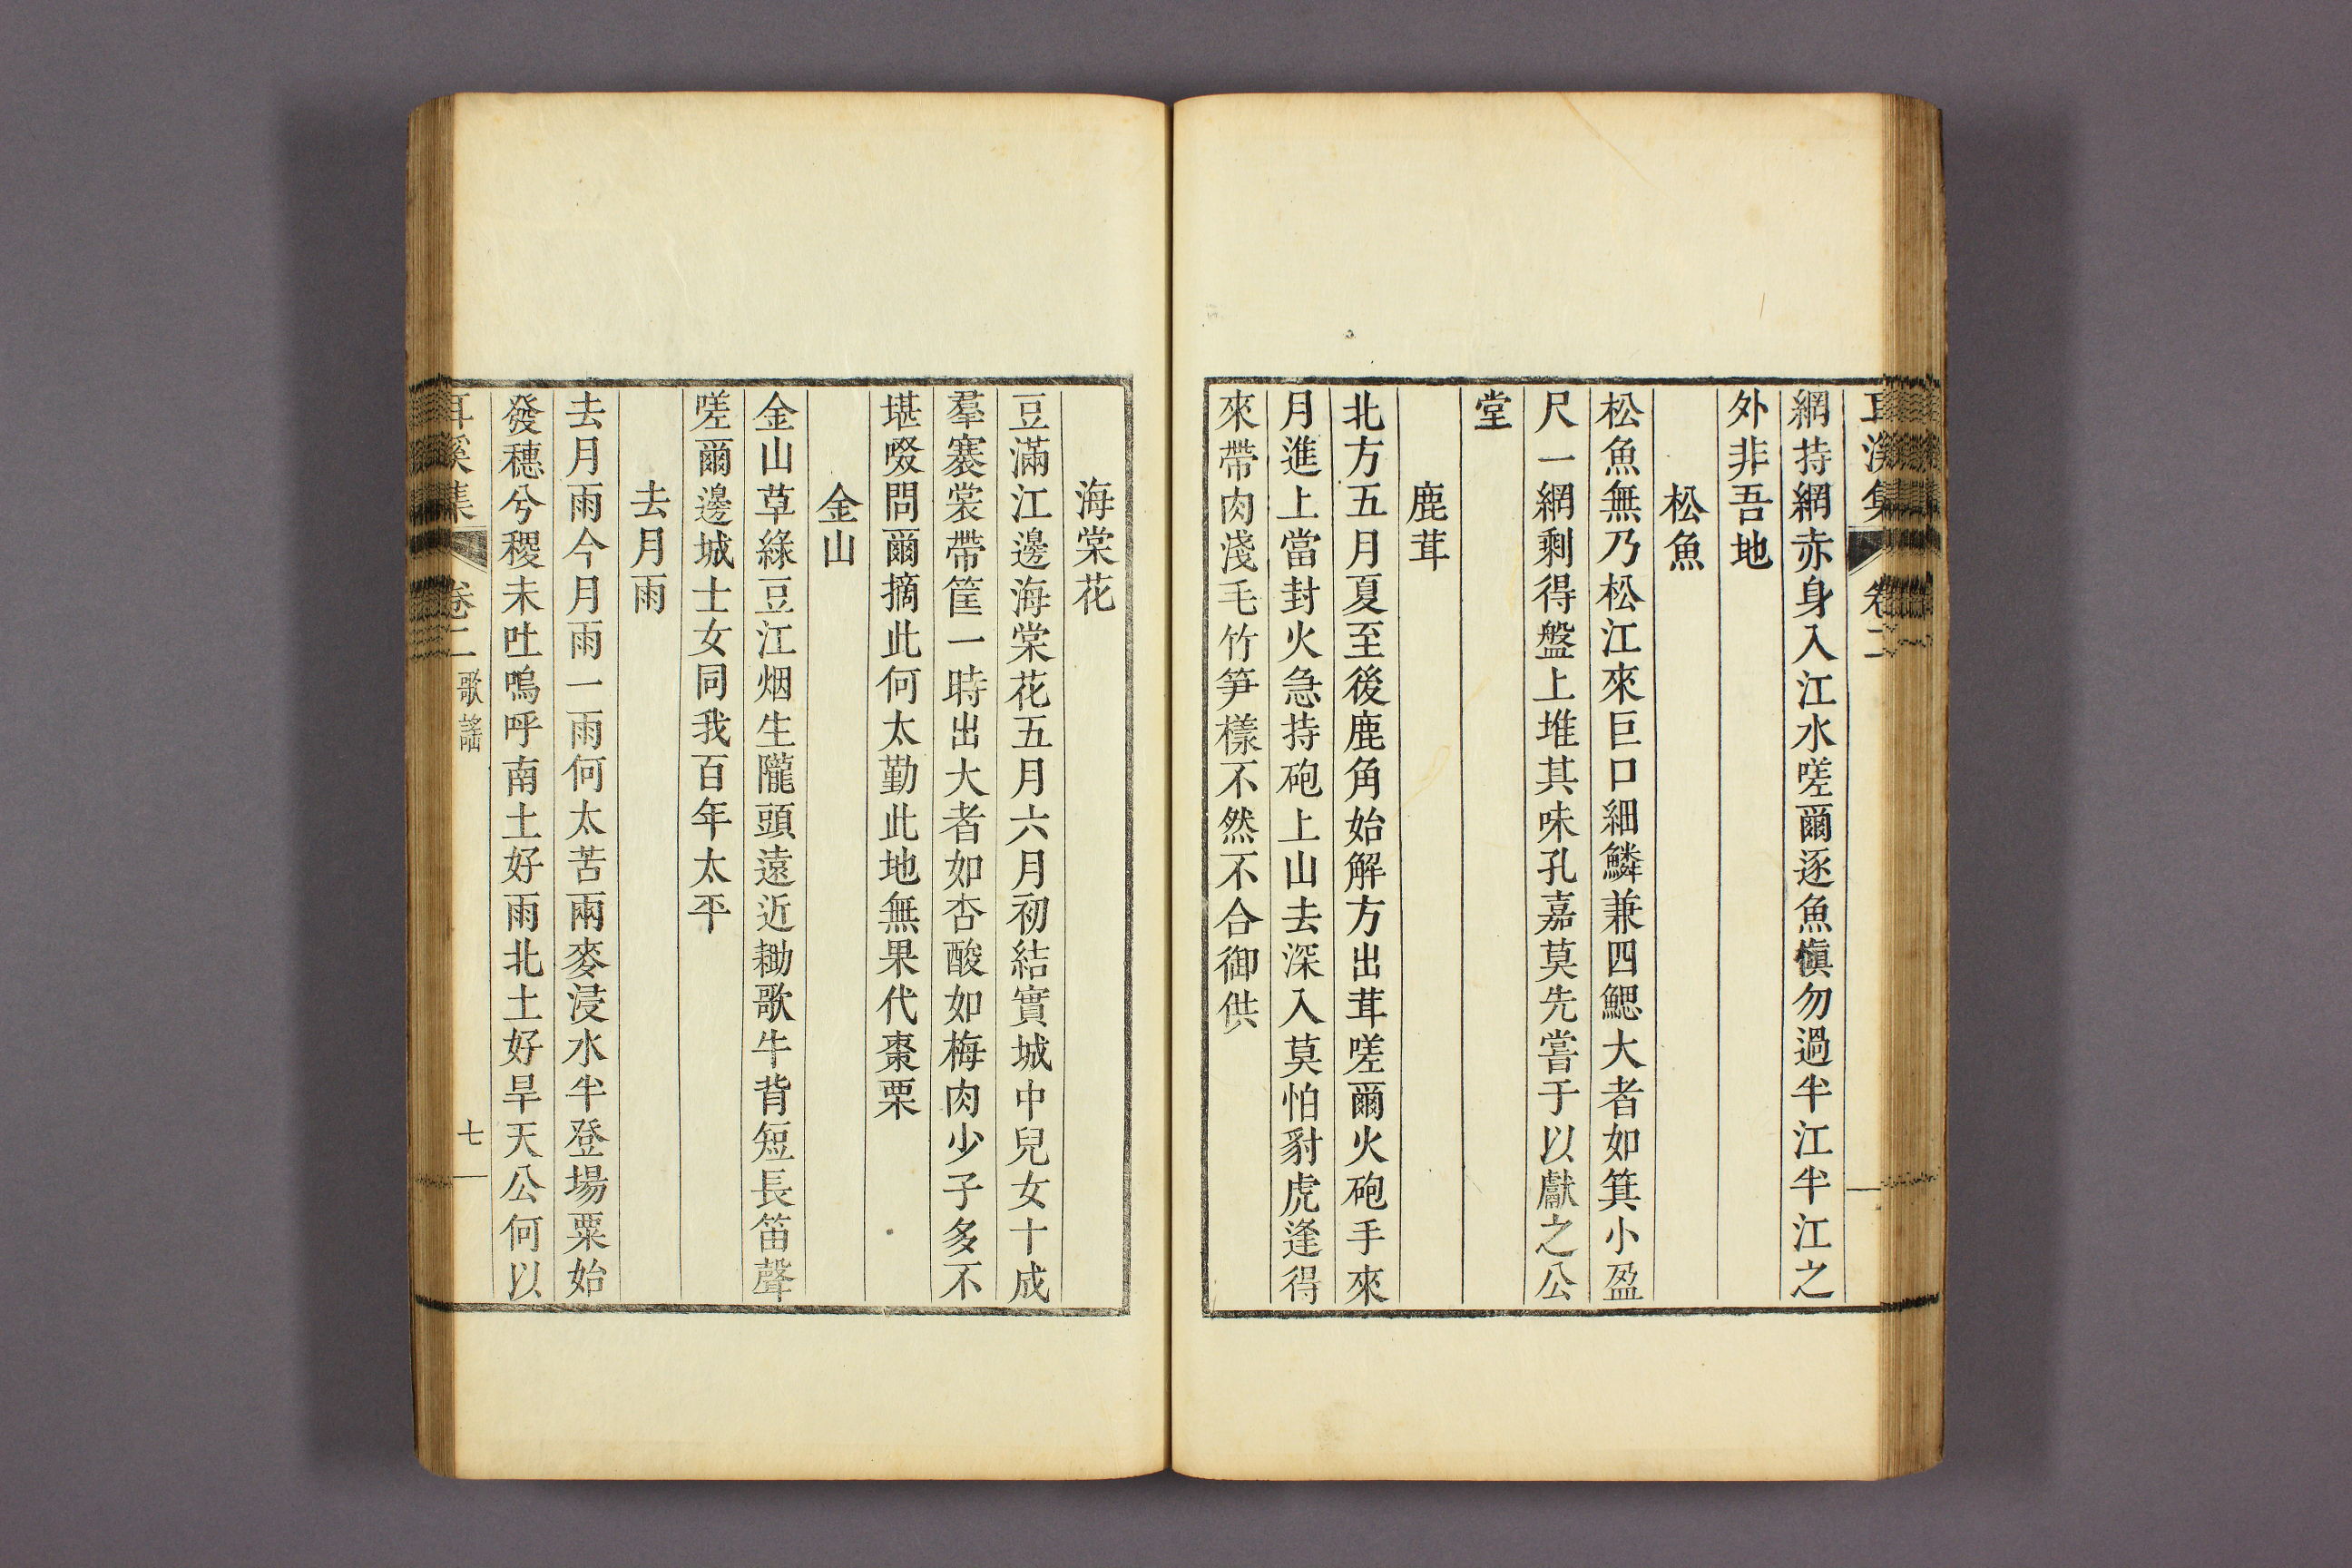 耳溪集 卷二
網持網赤身入江水嗟爾逐魚愼勿過半江半江之
外非吾地
松魚
松魚無乃松江來巨口細鱗兼四鰓大者如箕小盈
尺一網剩得盤上堆其味孔嘉莫先嘗于以獻之公
堂
鹿茸
北方五月夏至後鹿角始解方出茸嗟爾火砲手來
月進上當封火急持砲上山去深入莫怕豺虎逢得
來帶肉淺毛竹笋樣不然不合御供
海棠花
豆滿江邊海棠花五月六月初結實城中兒女十成
羣褰裳帶筐一時出大者如杏酸如梅肉少子多不
堪啜問爾摘此何太勤此地無果代棗栗
金山
金山草綠豆江烟生隴頭遠近耡歌牛背短長笛聲
嗟爾邊城士女同我百年太平
去月雨
去月雨今月雨一雨何太苦兩麥浸水半登場粟始
發穗兮稷未吐嗚呼南土好雨北土好旱天公何以
耳溪集 卷二 歌謠 七